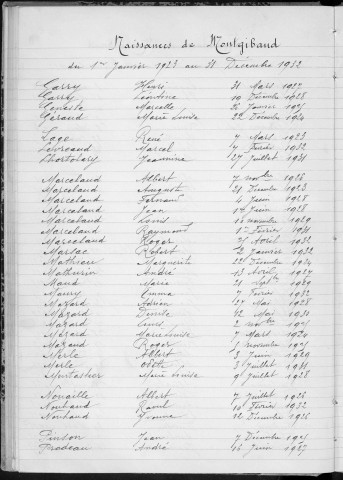 Naissances de Montgibaud
du 1er Janvier 1923 au 31 Décembre 1932
Garry Henri 31 Mars 1927
Garry Décembre 1928
Marcelle 22 Janvier 1925
Géraud Marie Louise 22 Décembre 1924
Lage René 7 Mars 1923
Marcel 4 Février 1932
Jeannine 27 Juillet 1931
Marceland Albert 7 novbre 1928
Marceland August 21 Décembre 1923
Marceland Fernand 4 Juin 1928
Marceland Jean 14 Juin 1928
Marceland Louis 16 novembre 1929
Marceland Raymond 1er Février 1931
Marceland Roger Avril 1932
Robert Janvier 1932
Mathieu Marguerite 22 Décembre 1924
Mathurin André 13 Avril 1927
Maud Marie 21 Septbre 1929
Maury Emma 7 Février 1932
Mazard Adrien 27 Mai 1928
Mazard Denise Mai 1930
Mazard 2 novbre
Marie Louise 7 Mars 1924
Mazard Roger novembre 1925
Merle Albert 3 Juin 1929
Merle Odette 3 Juillet 1931
Marie Louise 9 Juillet 1928
Nouaille Albert 7 Juillet 1926
Nouhaud Raoul 10 Février 1932
Nouhaud Yvonne 12 Décembre 1926
Pinson Jean 7 Décembre 1925
Pradeau André 16 Juin 1927